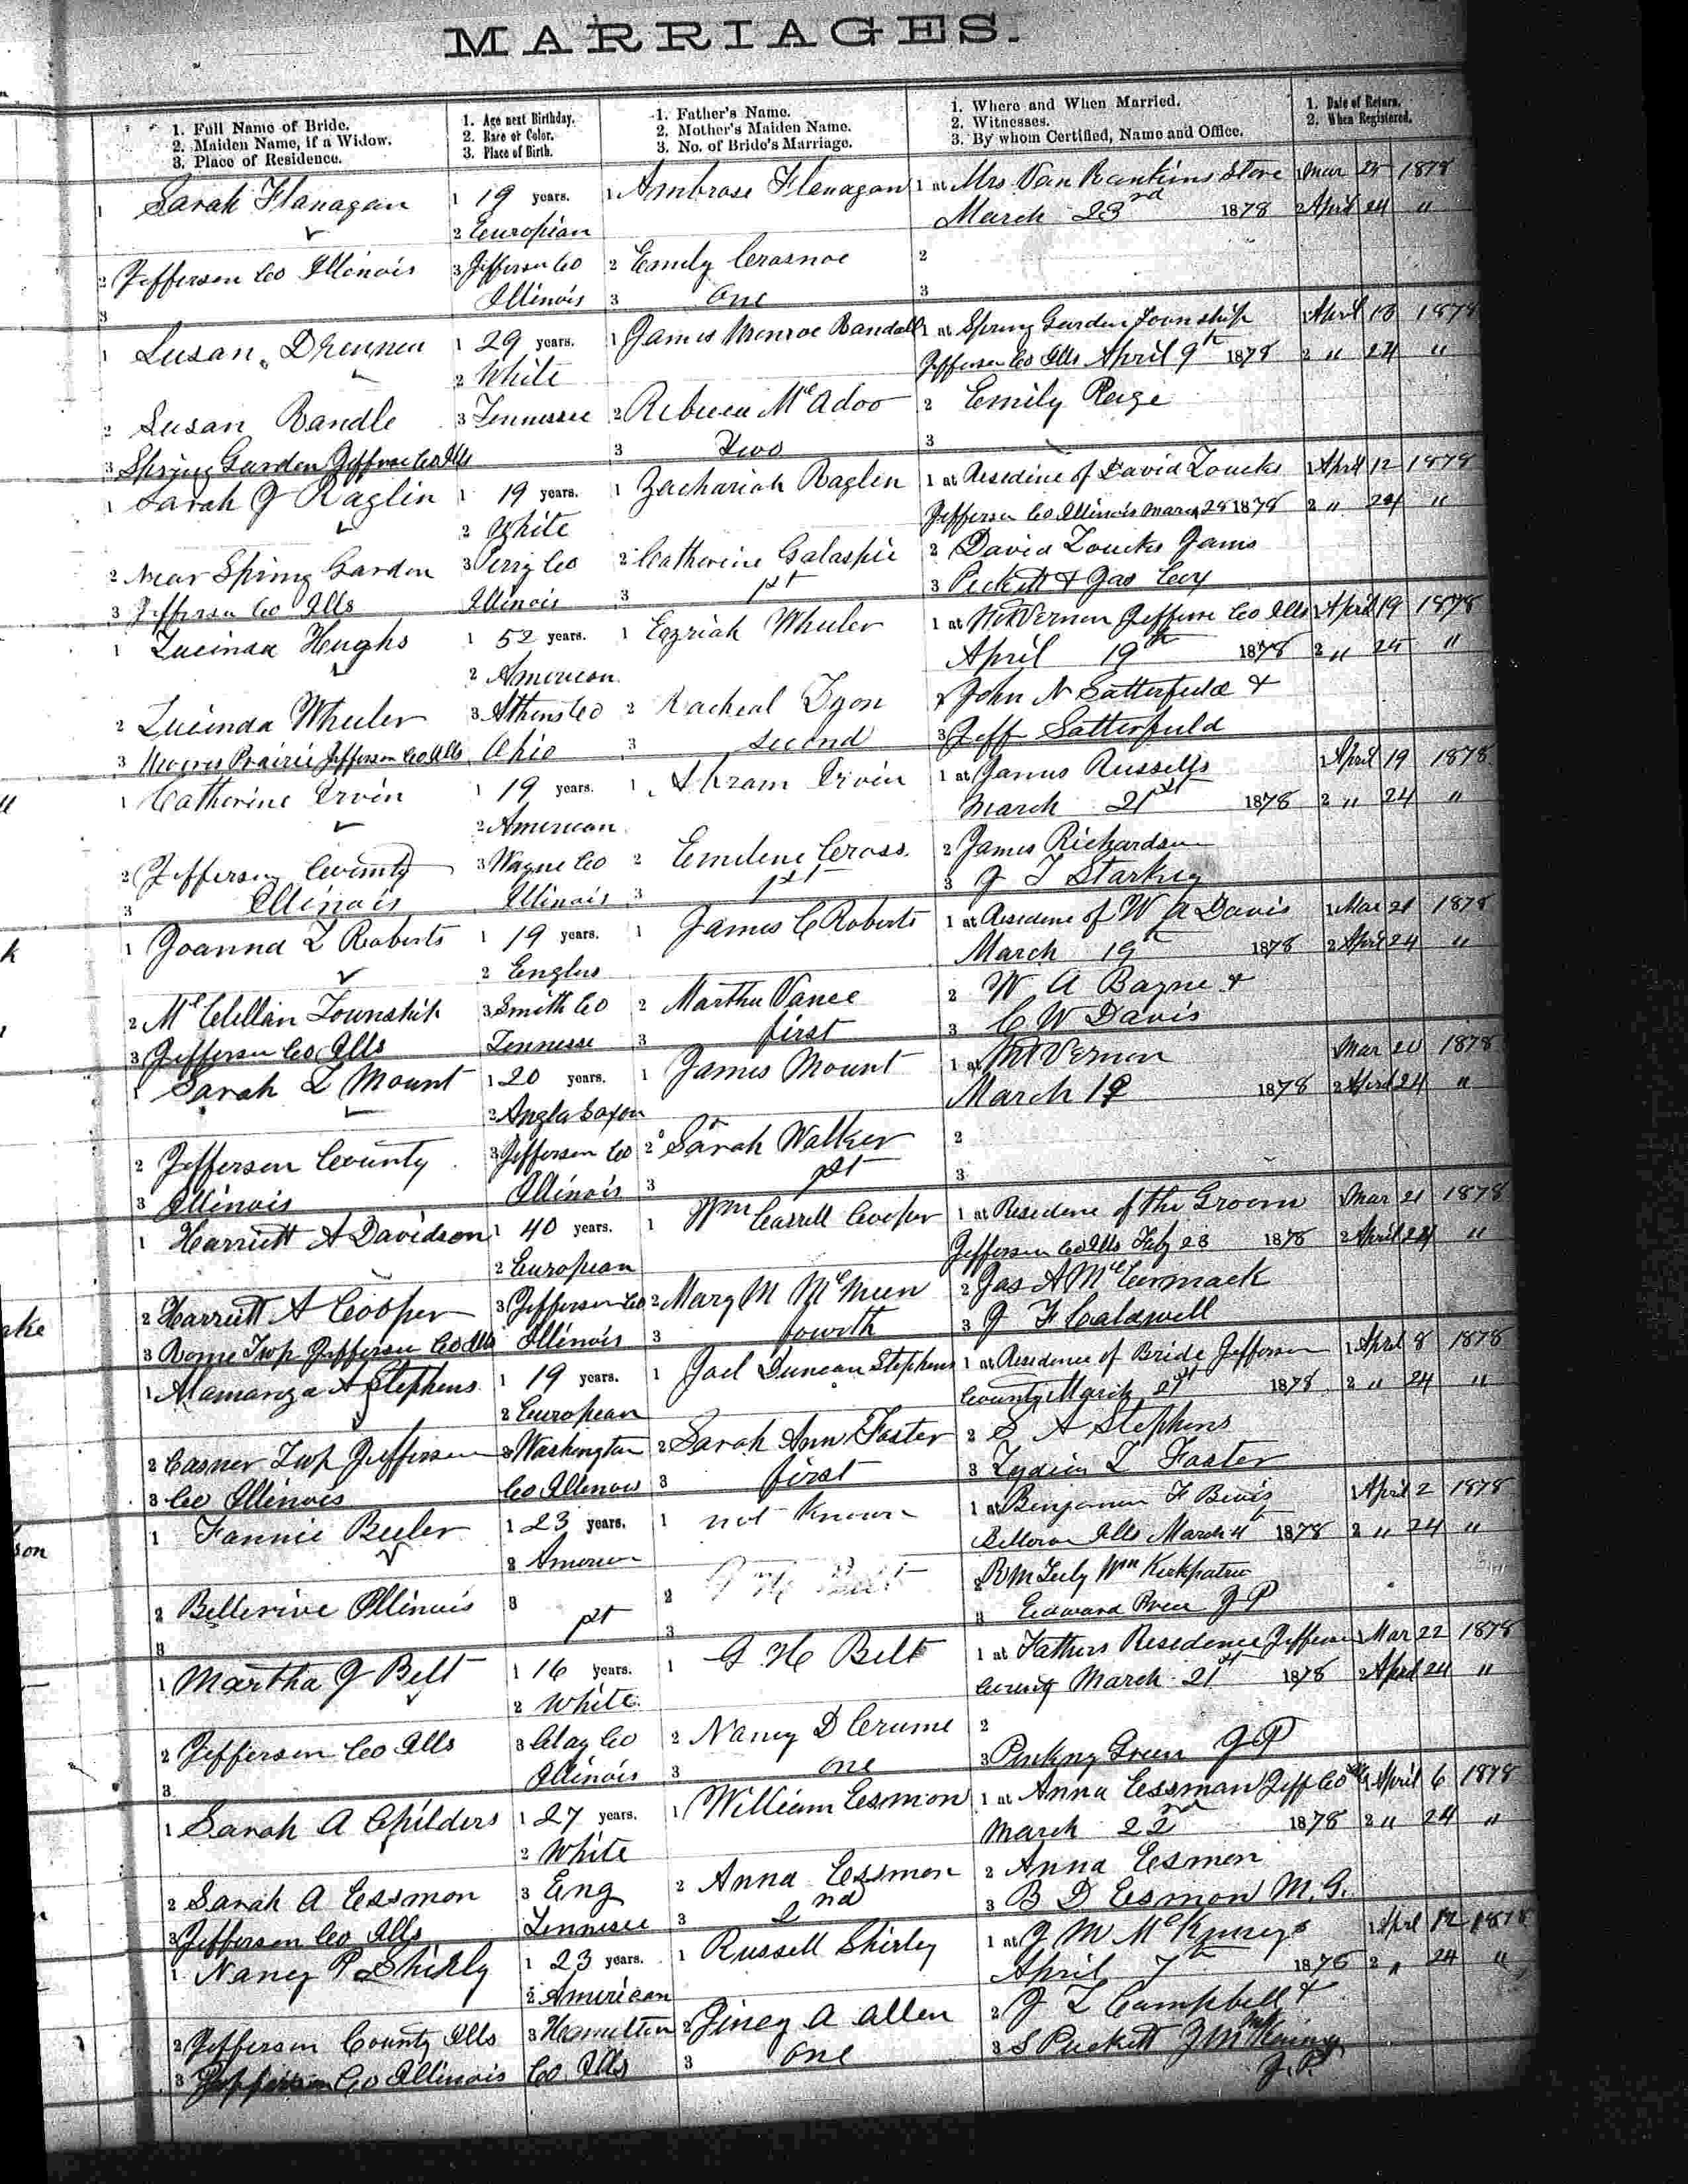 MARRIAGES.
1. Full Name of Bride.
2. Maiden Name, if a Widow.
3. Place of Residence.
1. Age next Birthday.
2. Race or Color.
3. Place of Birth.
1. Father's Name.
2. Mother's Maiden Name.
3. No. of Bride's Marriage.
1. Where and When Married.
2. Witnesses.
3. By whom Certified, Name and Office.
1. Date of Return.
2. When Registered.
1 Sarah Flanagan 1 19 years. 1 Ambrose Flanagan 1 at Mrs Van Rankins Store 1 Mar 25 1878
2 European March 23rd 1878 2 April 24 "
2 Jefferson Co Illinois 3 Jefferson Co 2 Emily Crasnoe 2
3 Illinois 3 One 3
1 Susan Drennen 1 29 years. 1 James Monroe Randall 1 at Spring Garden Township 1 April 10 1878
2 White Jefferson Co Ills April 9th 1878 2 " 24 "
2 Susan Randle 3 Tennessee 2 Rebecca McAdoo 2 Emily Page
3 Spring Garden Jefferson Co Ills 3 Two 3
1 Sarah J Raglin 1 19 years. 1 Zachariah Raglin 1 at Residine of David Loucks 1 April 12 1878
2 White Jefferson Co Illinois March 28 1878 2 " 24 "
2 Near Spring Garden 3 Perry Co 2 Catherine Galaspie 2 David Loucks James
3 Jefferson Co Ills Illinois 3 1st 3 Puckett & Jas Coy
1 Lucinda Hughs 1 52 years. 1 Ezriah Wheeler 1 at Mt Vernon Jefferson Co Ills 1 April 19 1878
2 American April 19th 1878 2 " 25 "
2 Lucinda Wheeler 3 Athens Co 2 Racheal Dyon 2 John N Satterfield &
3 Moores Prairie Jefferson Co Ills Ohio 3 second 3 Jeff Satterfield
1 Catherine Irvin 1 19 years. 1 Abram Irvin 1 at James Russells 1 April 19 1878
2 American March 21st 1878 2 " 24 "
2 Jefferson County 3 Wayne Co 2 Emilene Cross 2 James Richardson
3 Illinois Illinois 3 1st 3 J T Starkey
1 Joanna L Roberts 1 19 years. 1 James C Roberts 1 at Residene of W A Davis 1 Mar 21 1878
2 Englus March 19th 1878 2 April 24 "
2 McClellan Township 3 Smith Co 2 Martha Vance 2 W A Bayne &
3 Jefferson Co Ills Tennesse 3 first 3 C W Davis
1 Sarah L Mount 1 20 years. 1 James Mount 1 at Mt Vernon Mar 20 1878
2 Anglo Saxon March 19 1878 2 April 24 "
2 Jefferson County 3 Jefferson Co 2 Sarah Walker 2
3 Illinois Illinois 3 1st 3
1 Harriett A Davidson 1 40 years. 1 Wm Carrell Cooper 1 at Residene of the Groom Mar 21 1878
2 European Jefferson Co Ills Feby 28 1878 2 April 24 "
2 Harriett A Cooper 3 Jefferson Co 2 Mary M McMeen 2 Jas A McCormack
3 Rome Twp Jefferson Co Ills Illinois 3 fowrth 3 J F Caldwell
1 Alamanza A Stephens 1 19 years. 1 Joel Duncan Stephens 1 at Residence of Bride Jefferson 1 April 8 1878
2 European County March 21st 1878 2 " 24 "
2 Casner Twp Jefferson 3 Washington 2 Sarah Ann Foster 2 S A Stephens
3 Co Illinois Co Illinois 3 first 3 Lydia L Foster
1 Fannie Beeler 1 23 years. 1 not known 1 at Benjamin F Bevis 1 April 2 1878
2 American Ills March 4th 1878 2 " 24 "
2 Bellerive Illinois 3 1st 2 2 R M Wm Kirkpatric
3 3 3 Edward J P
1 Martha J Belt 1 16 years. 1 G H Belt 1 at Fathers Residence Jefferson Mar 22 1878
2 White County March 21st 1878 2 April 24 "
2 Jefferson Co Ills 3 Clay Co 2 Nancy D Crume 2
3 Illinois 3 one 3 Green J P
1 Sarah A Childers 1 27 years. 1 William Esmon 1 at Anna Essman Jeff Co Ills 1 April 6 1878
2 White March 22nd 1878 2 " 24 "
2 Sarah A Essmon 3 Eng 2 Anna Essmon 2 Anna Esmon
3 Jefferson Co Ills Tennesee 3 2nd 3 B D Esmon M.G.
1 Nancy P Shirly 1 23 years. 1 Russell Shirley 1 at J M McKinneys 1 April 12 1878
2 American April 7th 1878 2 " 24 "
2 Jefferson County Ills 3 Hamilton 2 Jincy A Allen 2 J L Campbell &
3 Jefferson Co Illinois Co Ills 3 one 3 S Puckett J M McKinney
J.P.